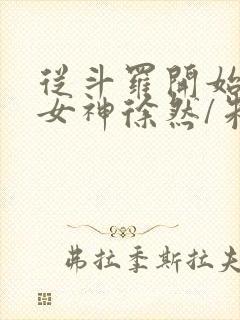 從斗羅開始
女神徐然/朱
弗拉季斯拉夫